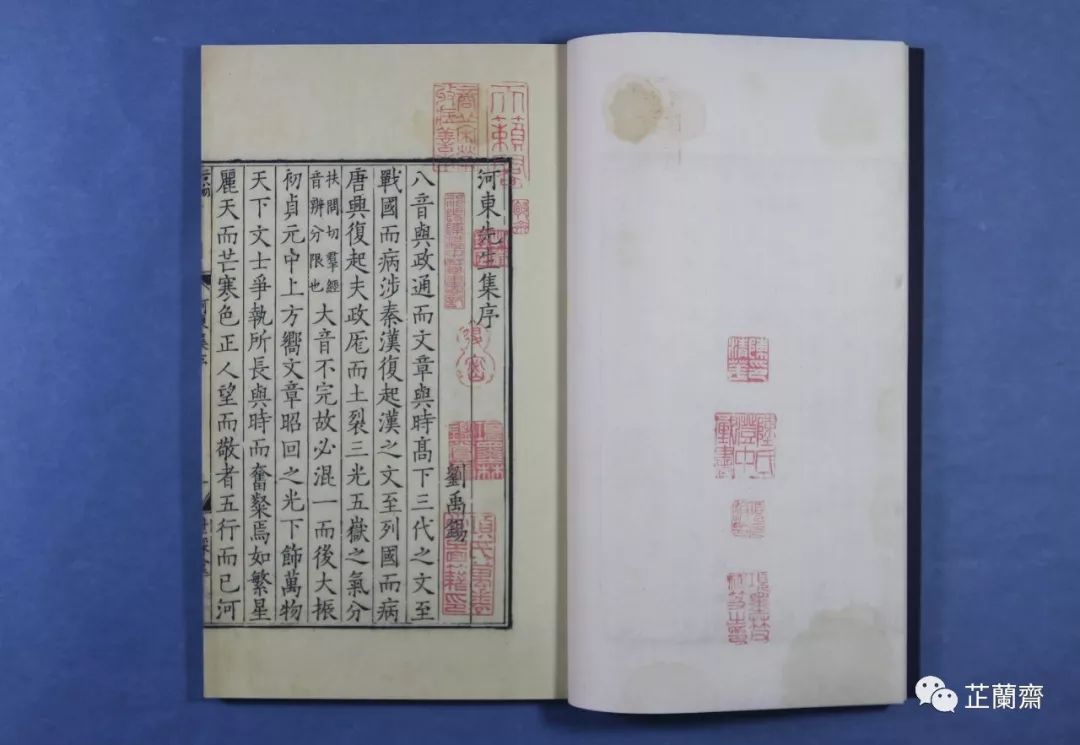 河東先生集序
劉禹錫
八音與政通而文章與時髙下三代之文至
戰國而病涉秦漢復起漢之文至列國而病
唐興復起夫政厖而土裂三光五嶽之氣分
扶問切羣經
音辨分限也
大音不完故必混一而後大振
初貞元中上方嚮文章昭回之光下飾萬物
天下文士爭執所長與時而奮粲焉如繁星
麗天而芒寒色正人望而敬者五行而已河
天籟閣
項氏萬卷
堂圖籍印
項墨林
陸氏
澄中
芷蘭齋